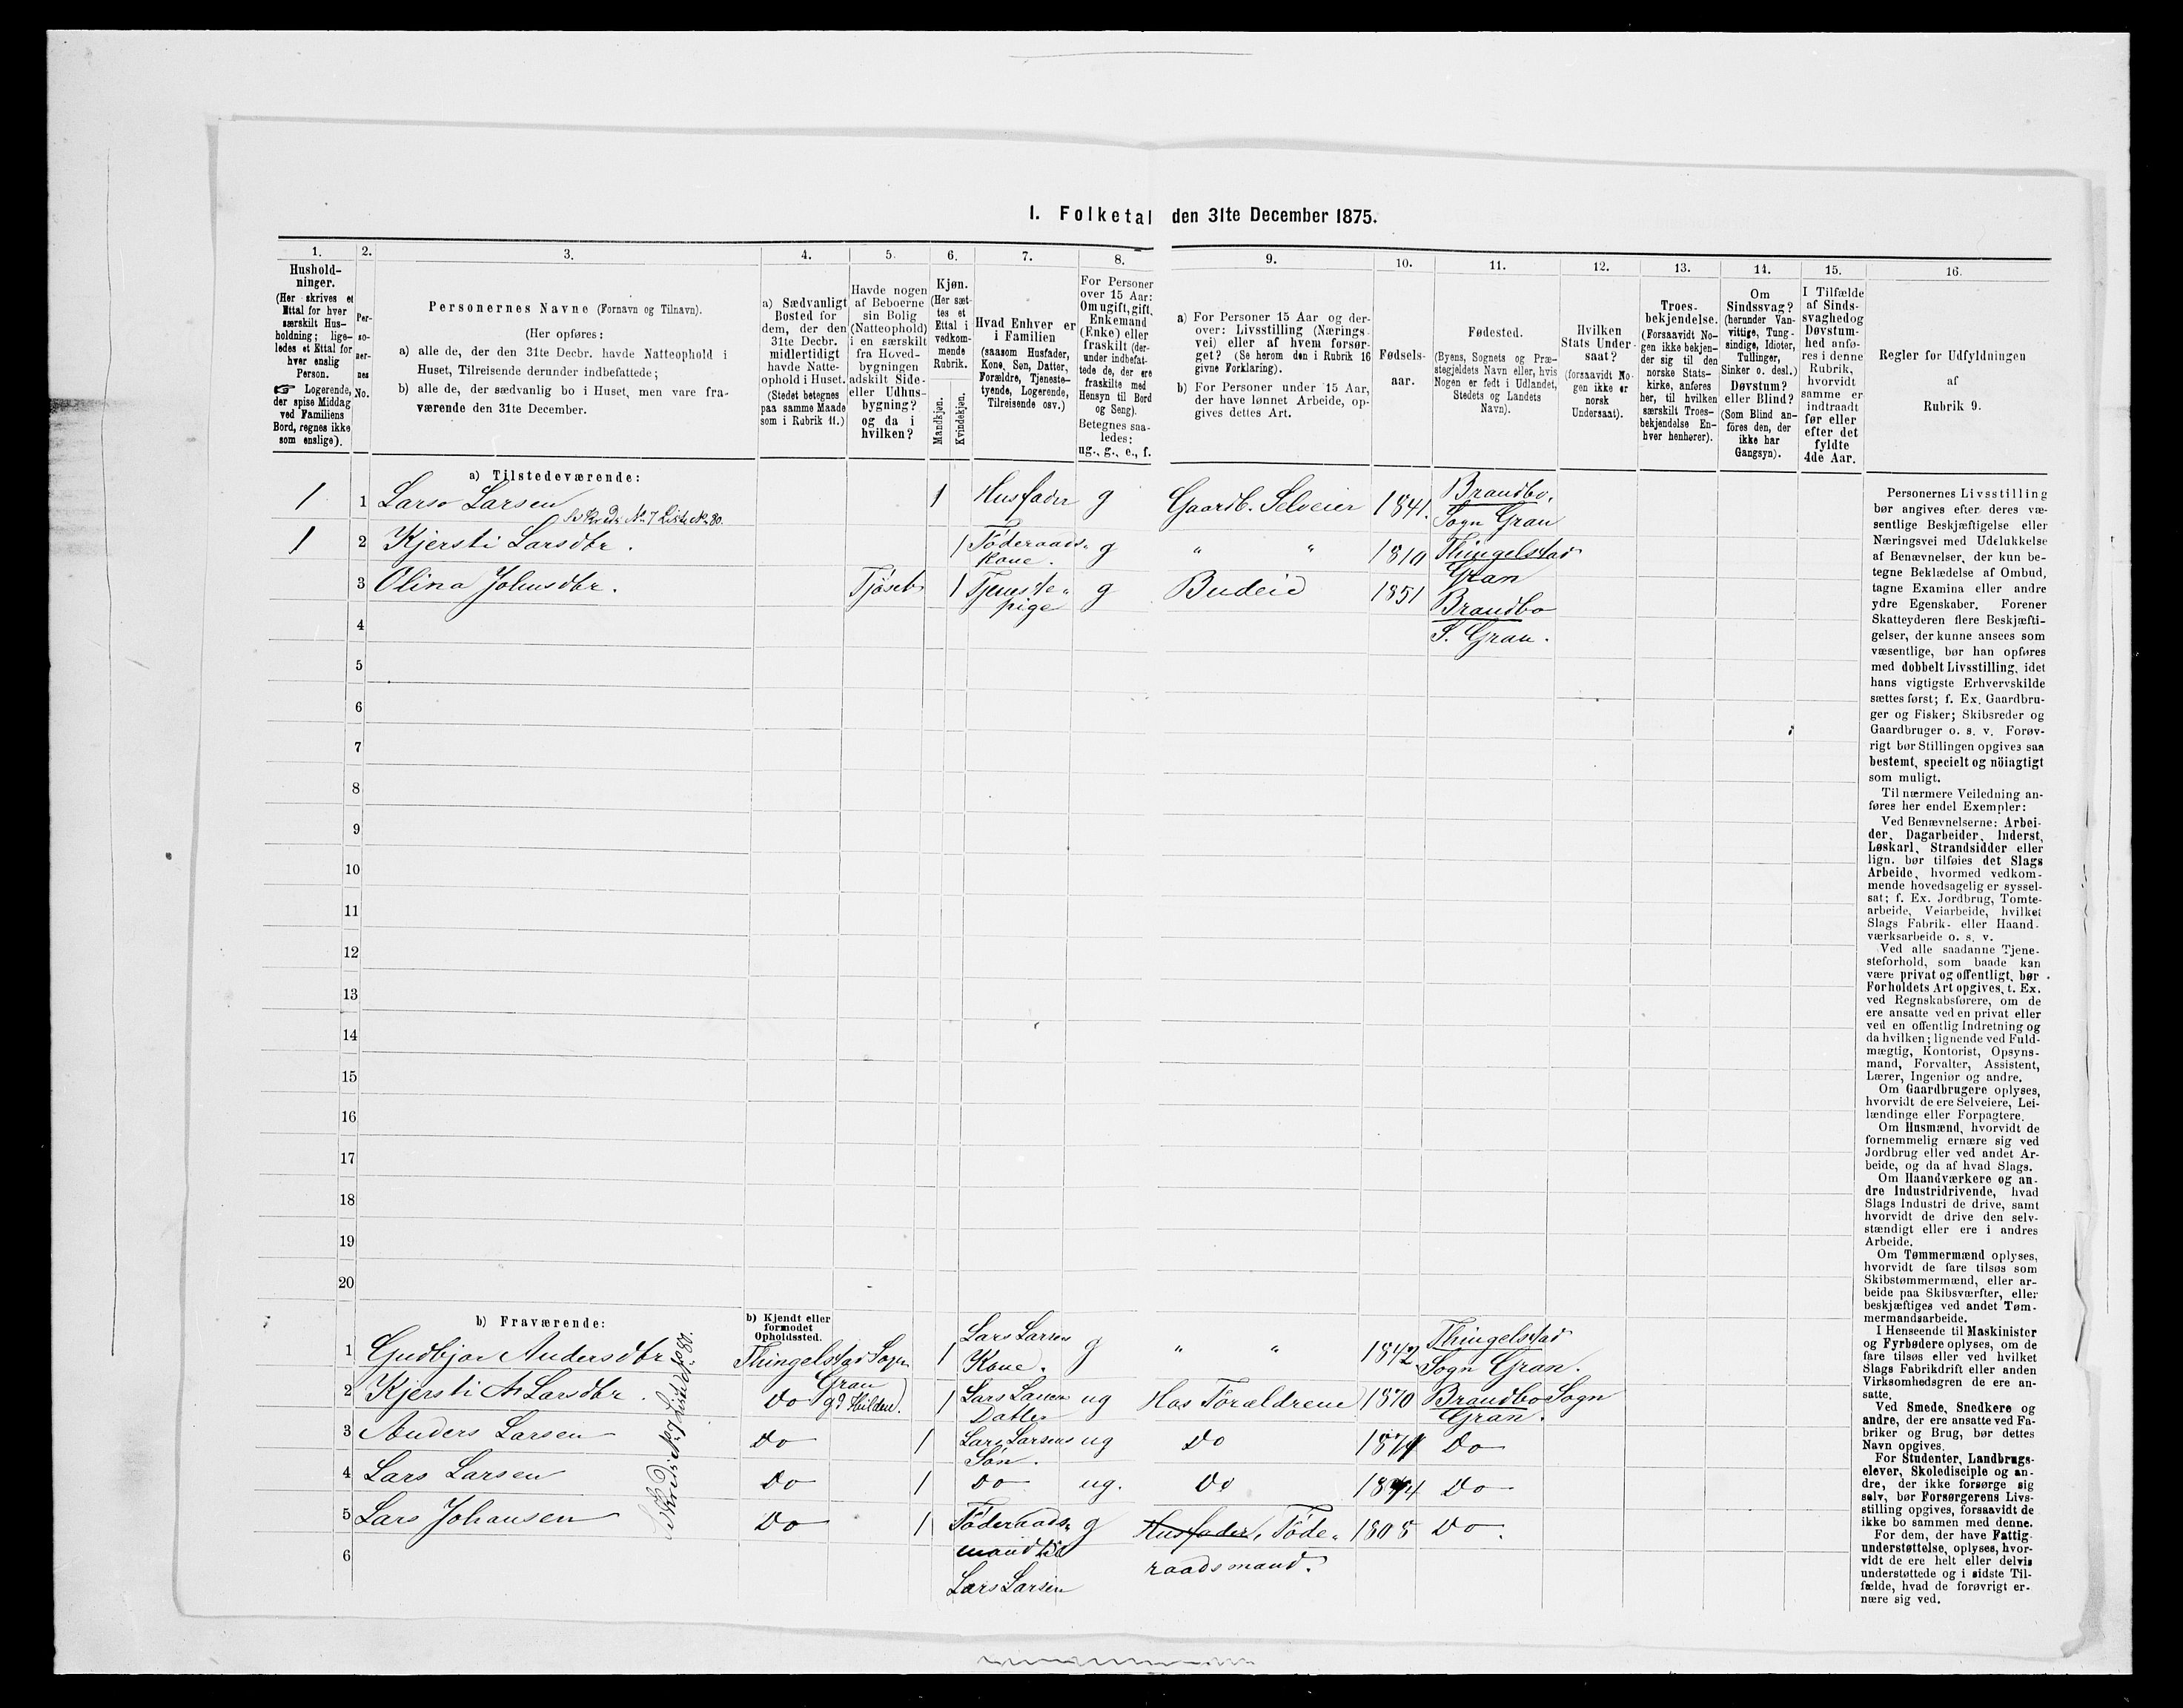 I. Folketal den 31te December 1875.
1. 2. 3. 4. 5. 6. 7. 8. 9. 10. 11. 12. 13. 14. 15. 16.
Hushold-
ninger.
(Her skrives et
Ettal for hver
særskilt Hus-
holdning; lige-
ledes et Ettal for
hver enslig
Person.
☞ Logerende,
der spise Middag
ved Familiens
Bord, regnes ikke
som enslige).
Per-
so-
ner-
nes
No.
Personernes Navne (Fornavn og Tilnavn).
(Her opføres:
a) alle de, der den 31te Decbr. havde Natteophold i
Huset, Tilreisende derunder indbefattede;
b) alle de, der sædvanlig bo i Huset, men vare fra-
værende den 31te December.
a) Sædvanligt
Bosted for
dem, der den
31te Decbr.
midlertidigt
havde Natte-
ophold i Huset.
(Stedet betegnes
paa samme Maade
som i Rubrik 11.)
Havde nogen
af Beboerne
sin Bolig
(Natteophold)
i en særskilt
fra Hoved-
bygningen
adskilt Side-
eller Udhus-
bygning?
og da i
hvilken?
Kjøn.
(Her sæt-
tes et
Ettal i
vedkom-
mende
Rubrik.
Mandkjøn.
Kvindekjøn.
Hvad Enhver er
i Familien
(saasom Husfader,
Kone, Søn, Datter,
Forældre, Tjeneste-
tyende, Logerende,
Tilreisende osv.)
For Personer
over 15 Aar:
Om ugift, gift,
Enkemand
(Enke) eller
fraskilt (der-
under indbefat-
tede de, der ere
fraskilte med
Hensyn til Bord
og Seng).
Betegnes saa-
ledes:
ug., g., e., f.
a) For Personer 15 Aar og der-
over: Livsstilling (Nærings-
vei) eller af hvem forsør-
get? (Se herom den i Rubrik 16
givne Forklaring).
b) For Personer under 15 Aar,
der have lønnet Arbeide, op-
gives dettes Art.
Fødsels-
aar.
Fødested.
(Byens, Sognets og Præ-
stegjeldets Navn eller, hvis
Nogen er født i Udlandet,
Stedets og Landets
Navn).
Hvilken
Stats Under-
saat?
(forsaavidt No-
gen ikke er
norsk
Undersaat).
Troes-
bekjendelse.
(Forsaavidt No-
gen ikke bekjen-
der sig til den
norske Stats-
kirke, anføres
her, til hvilken
særskilt Troes-
bekjendelse En-
hver henhører).
Om
Sindssvag?
(herunder Van-
vittige, Tung-
sindige, Idioter,
Tullinger,
Sinker o. desl.)
Døvstum?
eller Blind?
(Som Blind an-
føres den, der
ikke har
Gangsyn).
I Tilfælde
af Sinds-
svaghed og
Døvstum-
hed anfø-
res i denne
Rubrik,
hvorvidt
samme er
indtraadt
før eller
efter det
fyldte
4de Aar.
Regler for Udfyldningen
af
Rubrik 9.
a) Tilstedeværende:
1 1 Lars Larsen 1 Husfader g Gaardb. Selveier 1841. Brandbo,
Sogn Gran
Se Kreds No 7 Liste No 80.
1 2 Kjersti Larsdtr. 1 Föderaads- g " " 1810 Thingelstad
Kone. Gran
3 Olina Johnsdtr. Fjöset 1 Tjeneste- g Budeie 1851 Brandbo
pige S. Gran.
4
5
6
7
8
9
10
11
12
13
14
15
16
17
18
19
20
b) Fraværende:
b) Kjendt eller
formodet
Opholdssted.
1 Gudbjør Andersdtr Thingelstad Sogn 1 Lars Larsens g " " 1842 Thingelstad
Gran Kone. Sogn Gran.
2 Kjersti M Larsdtr. Do gd Hilden. 1 Lars Larsens ug Hos Forældrene 1870 Brandbo Sogn
Datter Gran.
3 Anders Larsen Do 1 Lars Larsens ug Do 1871 Do
Søn.
4 Lars Larsen Do 1 Do ug. Do 1874 Do
5 Lars Johansen Do 1 Föderaads- g Husfader, Föde- 1805 Do.
mand til raadsmand.
6 Lars Larsen
Se Kreds No 7 Liste No 80.
Personernes Livsstilling
bør angives efter deres væ-
sentlige Beskjæftigelse eller
Næringsvei med Udelukkelse
af Benævnelser, der kun be-
tegne Beklædelse af Ombud,
tagne Examina eller andre
ydre Egenskaber. Forener
Skatteyderen flere Beskjæfti-
gelser, der kunne ansees som
væsentlige, bør han opføres
med dobbelt Livsstilling, idet
hans vigtigste Erhvervskilde
sættes først; f. Ex. Gaardbru-
ger og Fisker; Skibsreder og
Gaardbruger o. s. v. Forøv-
rigt bør Stillingen opgives saa
bestemt, specielt og nöiagtigt
som muligt.
Til nærmere Veiledning an-
føres her endel Exempler:
Ved Benævnelserne: Arbei-
der, Dagarbeider, Inderst,
Løskarl, Strandsidder eller
lign. bør tilføies det Slags
Arbeide, hvormed vedkom-
mende hovedsagelig er syssel-
sat; f. Ex. Jordbrug, Tomte-
arbeide, Veiarbeide, hvilket
Slags Fabrik- eller Haand-
værksarbeide o. s. v.
Ved alle saadanne Tjene-
steforhold, som baade kan
være privat og offentligt, bør
Forholdets Art opgives, t. Ex.
ved Regnskabsførere, om de
ere ansatte ved en privat eller
ved en offentlig Indretning og
da hvilken; lignende ved Fuld-
mægtig, Kontorist, Opsyns-
mand, Forvalter, Assistent,
Lærer, Ingeniør og andre.
Om Gaardbrugere oplyses,
hvorvidt de ere Selveiere, Lei-
lændinge eller Forpagtere.
Om Husmænd, hvorvidt de
fornemmelig ernære sig ved
Jordbrug eller ved andet Ar-
beide, og da af hvad Slags.
Om Haandværkere og an-
dre Industridrivende, hvad
Slags Industri de drive, samt
hvorvidt de drive den selv-
stændigt eller ere i andres
Arbeide.
Om Tømmermænd oplyses,
hvorvidt de fare tilsøs som
Skibstømmermænd, eller ar-
beide paa Skibsværfter, eller
beskjæftiges ved andet Tøm-
mermandsarbeide.
I Henseende til Maskinister
og Fyrbødere oplyses, om de
fare tilsøs eller ved hvilket
Slags Fabrikdrift eller anden
Virksomhedsgren de ere an-
satte.
Ved Smede, Snedkere og
andre, der ere ansatte ved Fa-
briker og Brug, bør dettes
Navn opgives.
For Studenter, Landbrugs-
elever, Skoledisciple og an-
dre, der ikke forsørge sig
selv, bør Forsørgerens Livs-
stilling opgives, forsaavidt de
ikke bo sammen med denne.
For dem, der have Fattig-
understøttelse, oplyses, hvor-
vidt de ere helt eller delvis
understøttede og i sidste Til-
fælde, hvad de forøvrigt er-
nære sig ved.